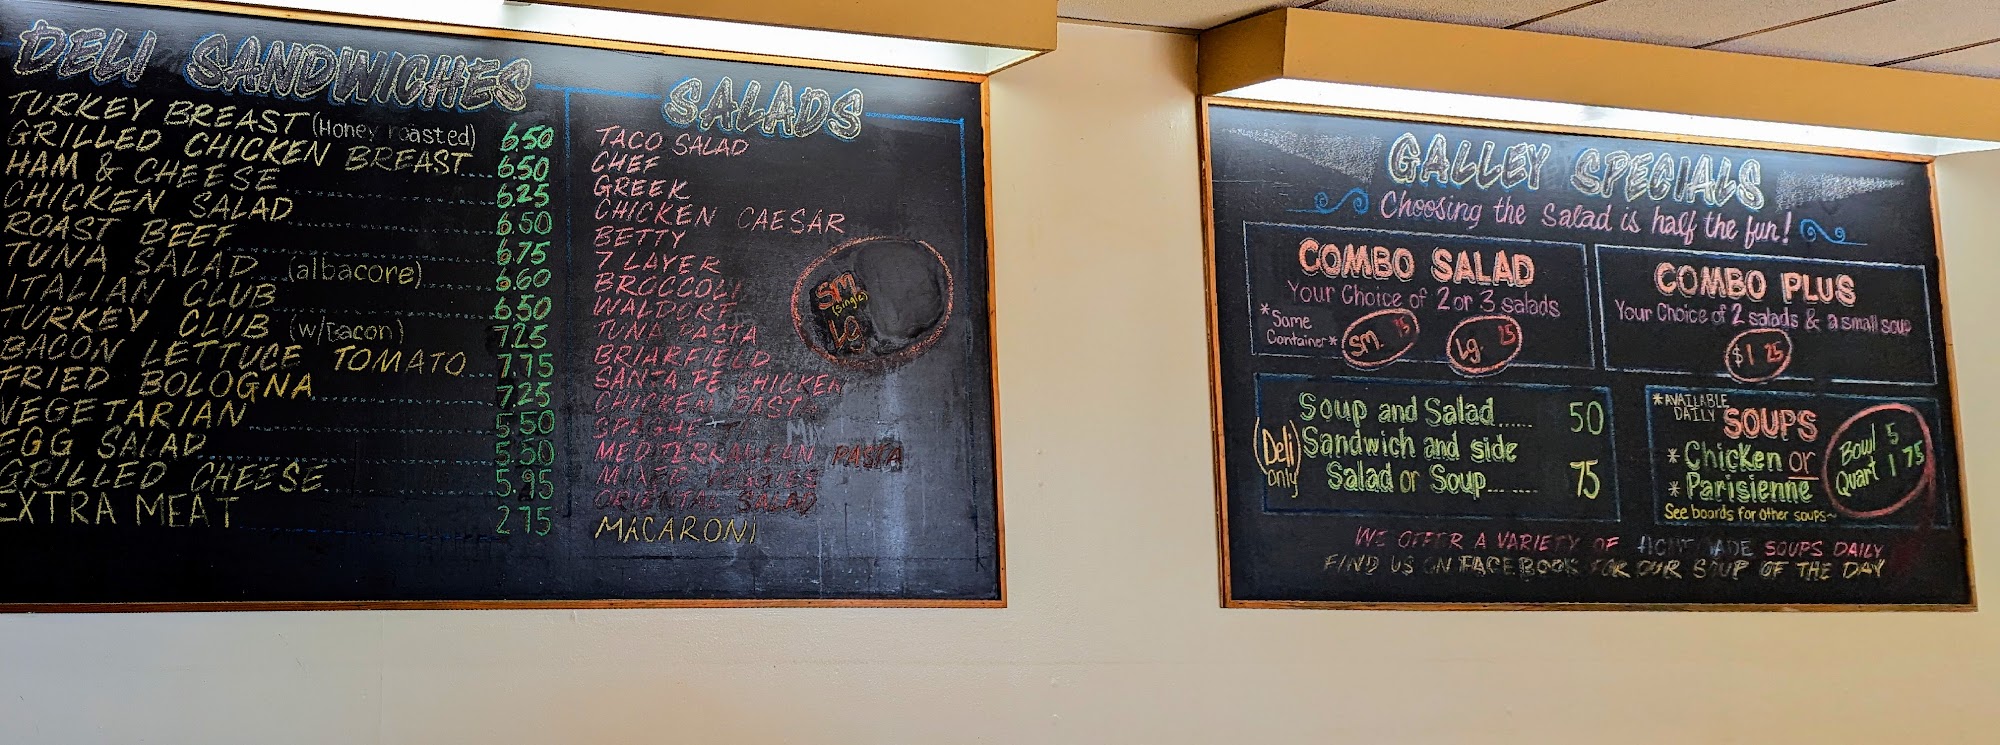 DELI SANDWICHES
TURKEY BREAST (Honey roasted) 6.50
GRILLED CHICKEN BREAST 6.50
HAM & CHEESE 6.25
CHICKEN SALAD 6.50
ROAST BEEF 6.75
TUNA SALAD (albacore) 6.60
ITALIAN CLUB 6.50
TURKEY CLUB (w/bacon) 7.25
BACON LETTUCE TOMATO 7.75
FRIED BOLOGNA 7.25
VEGETARIAN 5.50
EGG SALAD 5.50
GRILLED CHEESE 5.95
EXTRA MEAT 2.75
SALADS
TACO SALAD
CHEF
GREEK
CHICKEN CAESAR
BETTY
7 LAYER
BROCCOLI
WALDORF
TUNA PASTA
BRIARFIELD
SANTA FE CHICKEN
CHICKEN PASTA
SPAGHE
MEDITERRANEAN PASTA
MIXED VEGGIES
ORIENTAL SALAD
MACARONI
SM.
(single)
Lg.
GALLEY SPECIALS
Choosing the salad is half the fun!
COMBO SALAD
Your Choice of 2 or 3 salads
*Same
Container*
SM. 15
Lg. 25
COMBO PLUS
Your Choice of 2 salads & a small soup
$1 25
Soup and Salad...... 50
(Deli only) Sandwich and side
Salad or Soup........ 75
*AVAILABLE
DAILY SOUPS
* Chicken or
* Parisienne
See boards for other soups~
Bowl 5
Quart 1 75
WE OFFER A VARIETY OF HOMEMADE SOUPS DAILY
FIND US ON FACEBOOK FOR OUR SOUP OF THE DAY